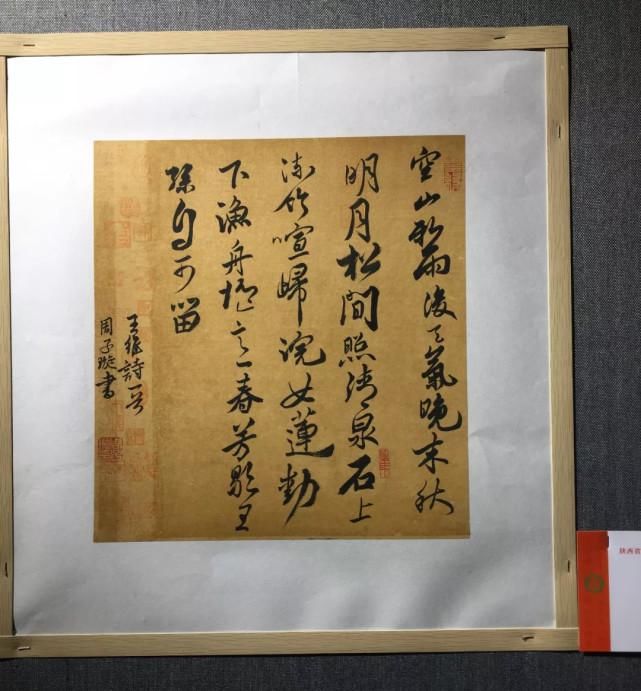 空山新雨後天氣晚来秋
明月松間照清泉石上
流竹喧歸浣女蓮動
下漁舟隨意春芳歇王
孫自可留
王維詩一首
周子璇書
陕西省